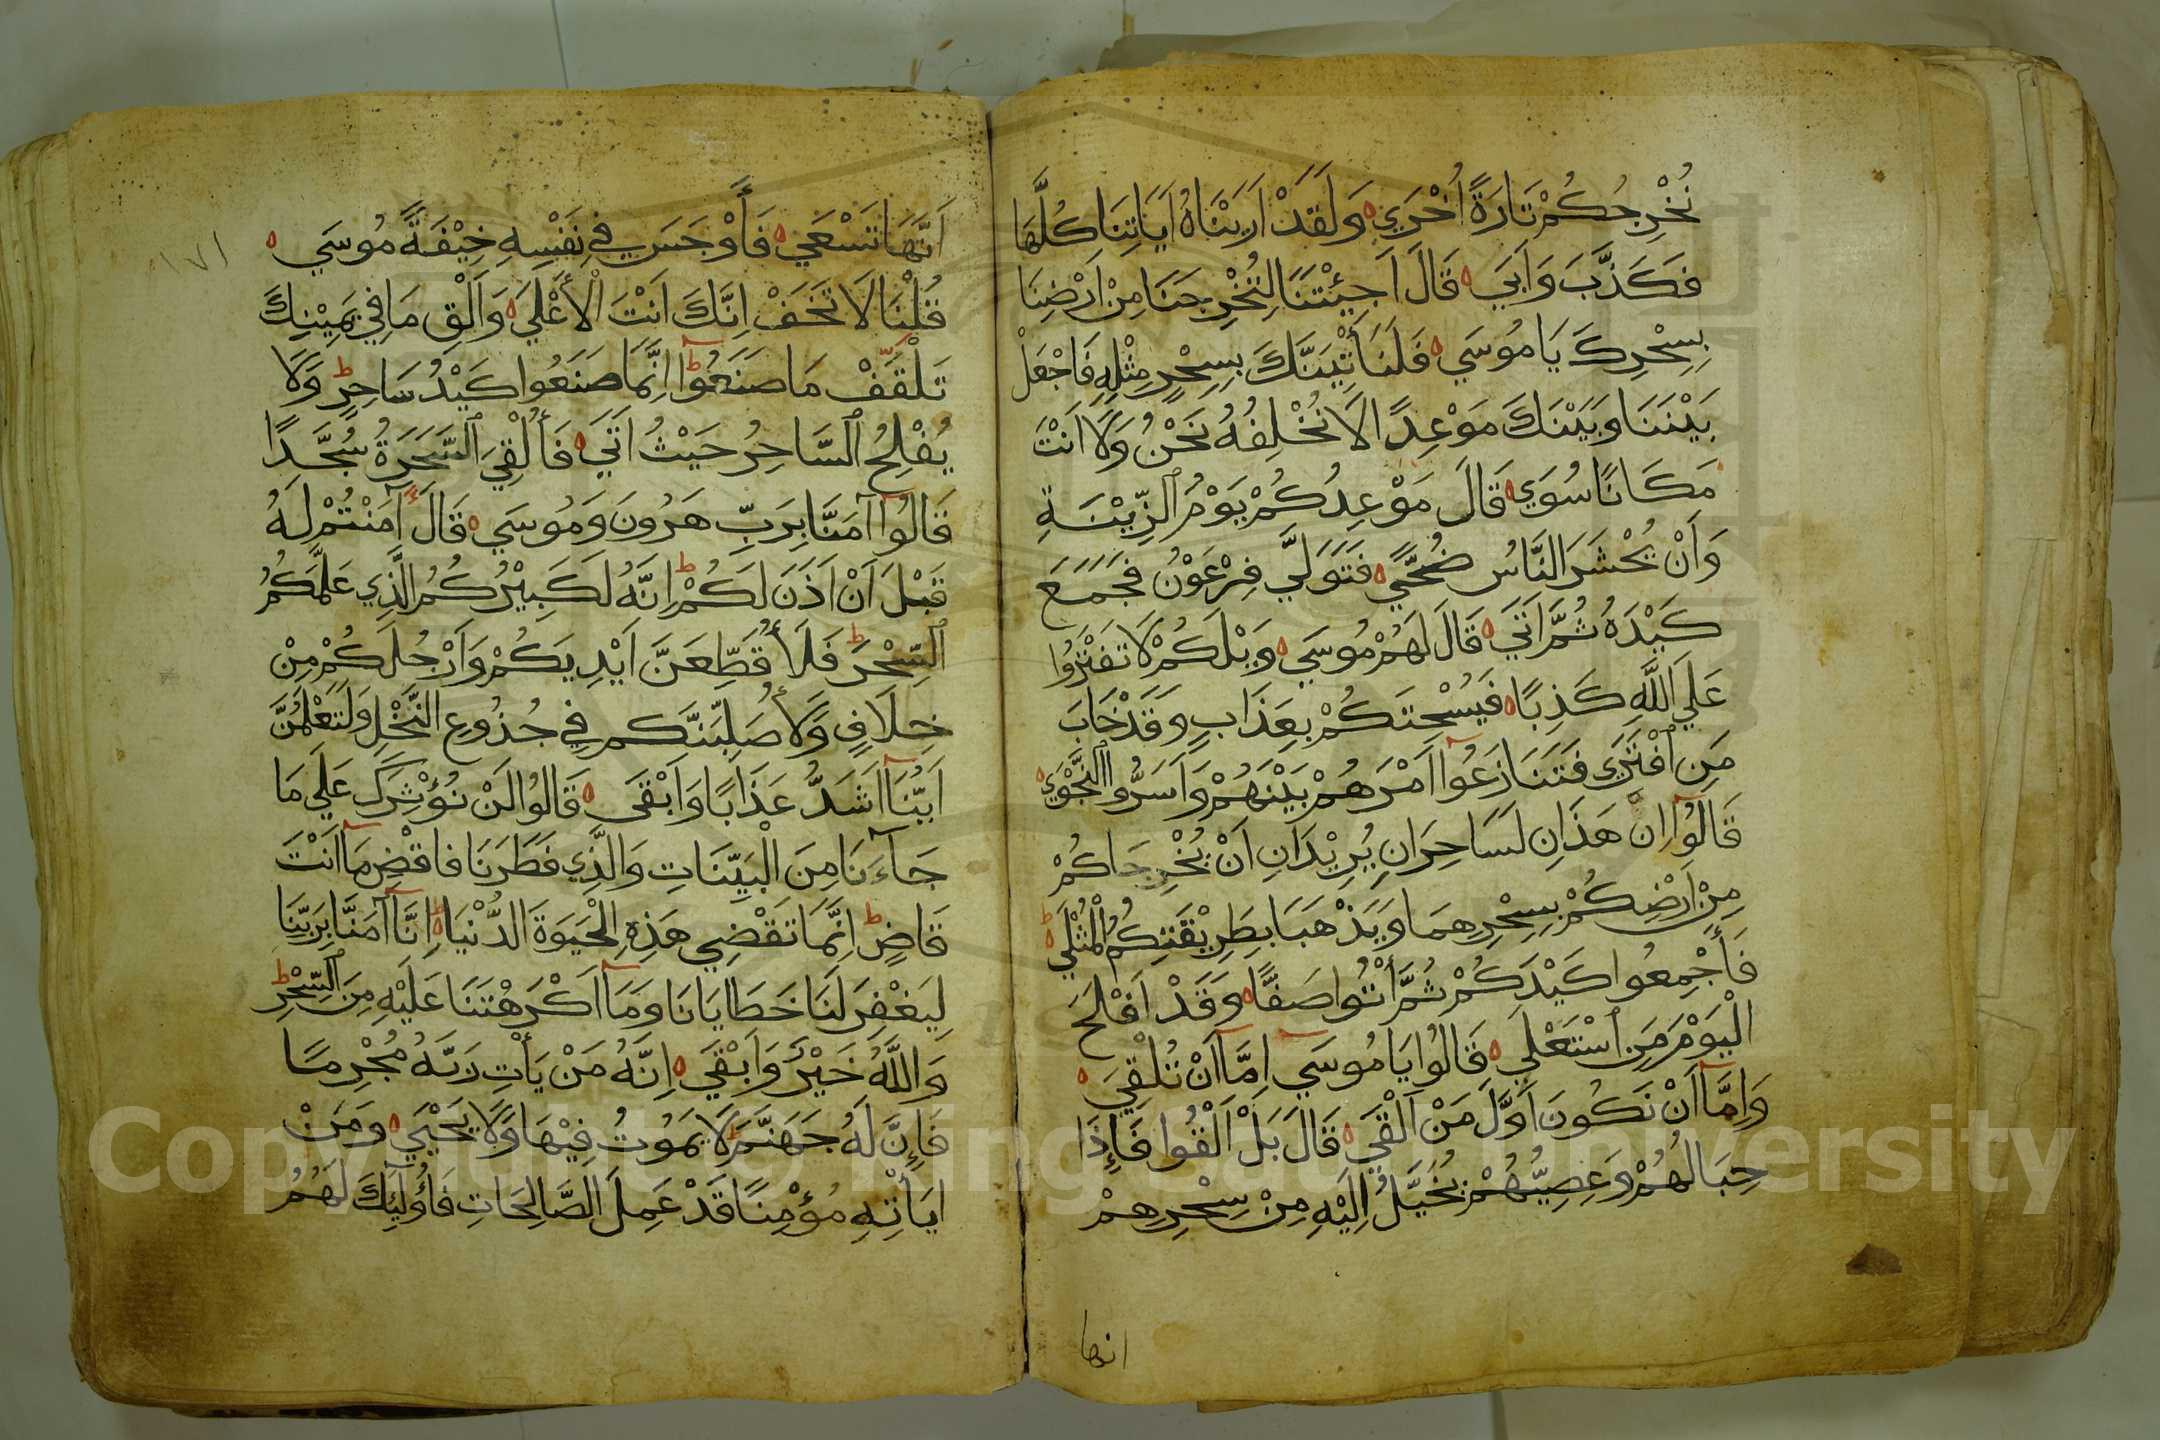 نُخْرِجُكُمْ تَارَةً اُخْرَي ه وَلَقَدْ اَرَيْنَاهُ اٰيَاتِنَا كُلَّهَا
فَكَذَّبَ وَاَبَي ه قَالَ اَجِئْتَنَا لِتُخْرِجَنَا مِنْ اَرْضِنَا
بِسِحْرِكَ يَا مُوسَي ه فَلَنَأْتِيَنَّكَ بِسِحْرٍ مِثْلِهِ فَاجْعَلْ
بَيْنَنَا وَبَيْنَكَ مَوْعِدًا لَا نُخْلِفُهُ نَحْنُ وَلَا اَنْتَ
مَكَانًا سُوَي ه قَالَ مَوْعِدُكُمْ يَوْمُ الزِّيْنَةِ
وَاَنْ يُحْشَرَ النَّاسُ ضُحًي ه فَتَوَلَّي فِرْعَوْنُ فَجَمَعَ
كَيْدَهُ ثُمَّ اَتَي ه قَالَ لَهُمْ مُوسَي ه وَيْلَكُمْ لَا تَفْتَرُوا
عَلَي اللَّهِ كَذِبًا ه فَيُسْحِتَكُمْ بِعَذَابٍ وَقَدْ خَابَ
مَنِ افْتَرَي فَتَنَازَعُوا اَمْرَهُمْ بَيْنَهُمْ وَاَسَرُّوا النَّجْوَي ه
قَالُوا اِنْ هَذَانِ لَسَاحِرَانِ يُرِيْدَانِ اَنْ يُخْرِجَاكُمْ
مِنْ اَرْضِكُمْ بِسِحْرِهِمَا وَيَذْهَبَا بِطَرِيْقَتِكُمُ الْمُثْلَي ه ط
فَأَجْمِعُوا كَيْدَكُمْ ثُمَّ أْتُوا صَفًّا ه وَقَدْ اَفْلَحَ
الْيَوْمَ مَنِ اسْتَعْلَي ه قَالُوا يَا مُوسَي اِمَّا اَنْ تُلْقِيَ ه
وَاِمَّا اَنْ نَكُونَ اَوَّلَ مَنْ اَلْقَي ه قَالَ بَلْ اَلْقُوا فَإِذَا
حِبَالُهُمْ وَعِصِيُّهُمْ يُخَيَّلُ اِلَيْهِ مِنْ سِحْرِهِمْ
انها
١٧١
اَنَّهَا تَسْعَي ه فَأَوْجَسَ فِي نَفْسِهِ خِيْفَةً مُوسَي ه
قُلْنَا لَا تَخَفْ اِنَّكَ اَنْتَ الْأَعْلَي ه وَاَلْقِ مَا فِي يَمِيْنِكَ
تَلْقَفْ مَا صَنَعُوا ط اِنَّمَا صَنَعُوا كَيْدُ سَاحِرٍ ط وَلَا
يُفْلِحُ السَّاحِرُ حَيْثُ اَتَي ه فَأُلْقِيَ السَّحَرَةُ سُجَّدًا
قَالُوا آمَنَّا بِرَبِّ هَرُونَ وَمُوسَي ه قَالَ آمَنْتُمْ لَهُ
قَبْلَ اَنْ اَذَنَ لَكُمْ ط اِنَّهُ لَكَبِيْرُكُمُ الَّذِي عَلَّمَكُمُ
السِّحْرَ ط فَلَأُقَطِّعَنَّ اَيْدِيَكُمْ وَاَرْجُلَكُمْ مِنْ
خِلَافٍ وَلَأُصَلِّبَنَّكُمْ فِي جُذُوعِ النَّخْلِ وَلَتَعْلَمُنَّ
اَيُّنَا اَشَدُّ عَذَابًا وَاَبْقَي ه قَالُوا لَنْ نُؤْثِرَكَ عَلَي مَا
جَآءَنَا مِنَ الْبَيِّنَاتِ وَالَّذِي فَطَرَنَا فَاقْضِ مَا اَنْتَ
قَاضٍ ط اِنَّمَا تَقْضِي هَذِهِ الْحَيَوةَ الدُّنْيَا ه ط اِنَّا آمَنَّا بِرَبِّنَا
لِيَغْفِرَ لَنَا خَطَايَانَا وَمَا اَكْرَهْتَنَا عَلَيْهِ مِنَ السِّحْرِ ط
وَاللَّهُ خَيْرٌ وَاَبْقَي ه اِنَّهُ مَنْ يَأْتِ رَبَّهُ مُجْرِمًا
فَإِنَّ لَهُ جَهَنَّمَ ط لَا يَمُوتُ فِيْهَا وَلَا يَحْيَي ه وَمَنْ
يَأْتِهِ مُؤْمِنًا قَدْ عَمِلَ الصَّالِحَاتِ فَأُولَئِكَ لَهُمُ
Copyright © King Saud University